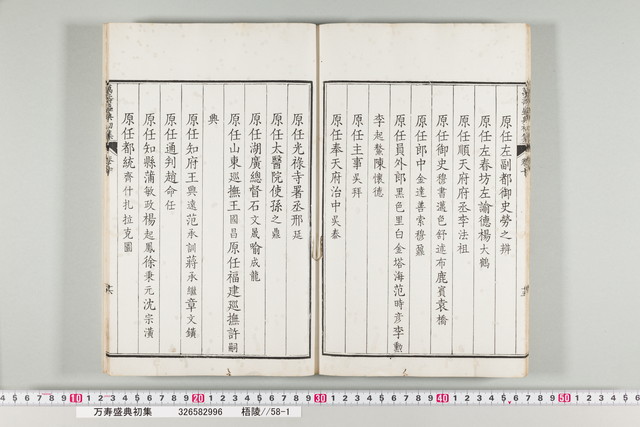 原任左副都御史勞之辨
原任左春坊左諭德楊大鶴
原任順天府府丞李法祖
原任御史穆書邁色舒述布鹿賓袁橋
原任郎中金達善索穆鼐
原任員外郎黑色里白金塔海范時彦李勲
李起鰲陳懷德
原任主事吴拜
原任奉天府治中吴泰
原任光祿寺署丞邢延
原任太醫院使孫之鼎
原任湖廣總督石文晟喻成龍
原任山東巡撫王國昌原任福建巡撫許嗣
興
原任知府王興遠范承訓蔣承繼章文鐄
原任通判趙命任
原任知縣蒲敏政楊起鳳徐秉元沈宗潢
原任都統齊什扎拉克圖
万寿盛典初集 326582996 梧陵//58-1